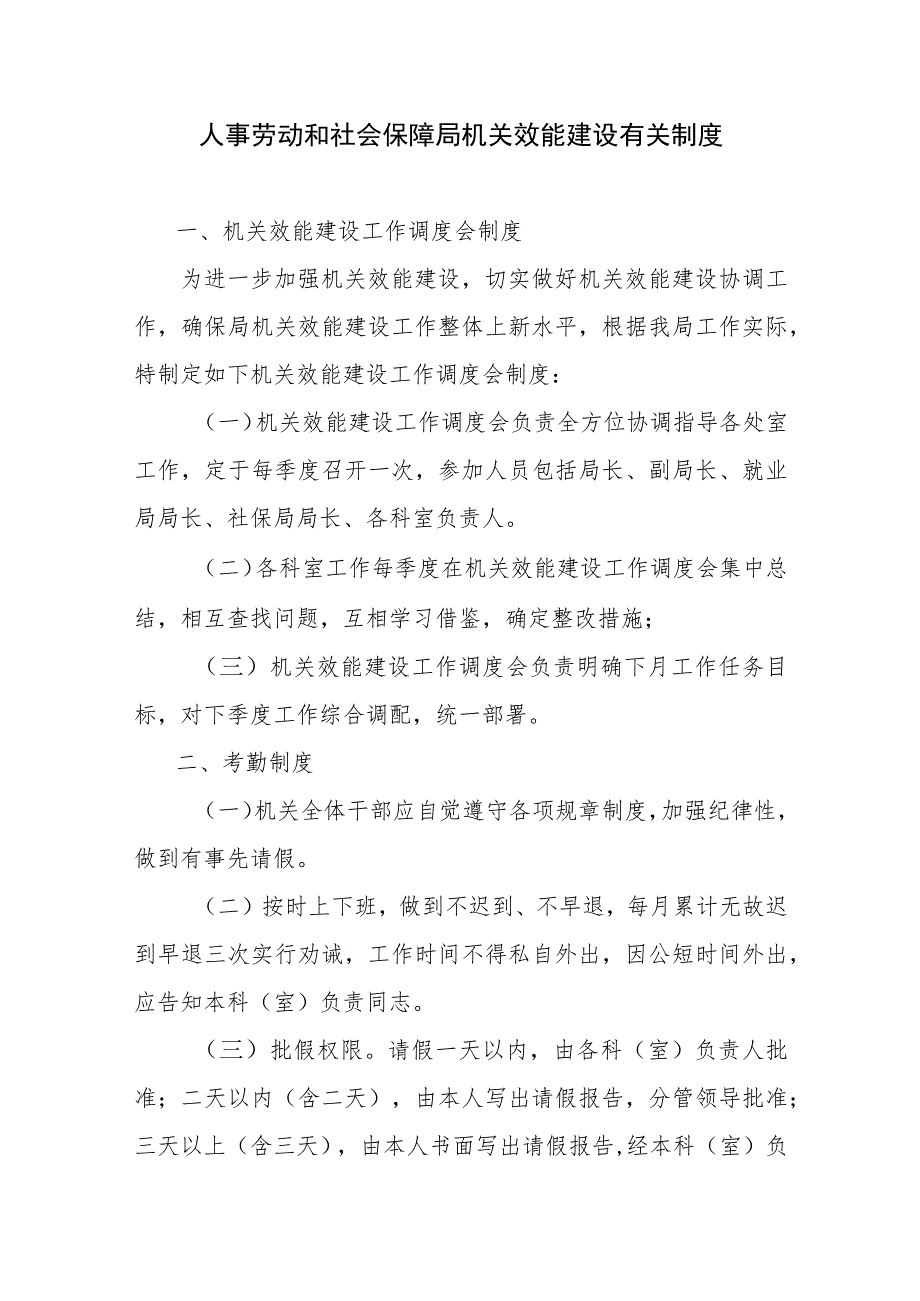 人事劳动和社会保障局机关效能建设有关制度
一、机关效能建设工作调度会制度
为进一步加强机关效能建设，切实做好机关效能建设协调工
作，确保局机关效能建设工作整体上新水平，根据我局工作实际，
特制定如下机关效能建设工作调度会制度：
（一）机关效能建设工作调度会负责全方位协调指导各处室
工作，定于每季度召开一次，参加人员包括局长、副局长、就业
局局长、社保局局长、各科室负责人。
（二）各科室工作每季度在机关效能建设工作调度会集中总
结，相互查找问题，互相学习借鉴，确定整改措施；
（三）机关效能建设工作调度会负责明确下月工作任务目
标，对下季度工作综合调配，统一部署。
二、考勤制度
（一）机关全体干部应自觉遵守各项规章制度，加强纪律性，
做到有事先请假。
（二）按时上下班，做到不迟到、不早退，每月累计无故迟
到早退三次实行劝诫，工作时间不得私自外出，因公短时间外出，
应告知本科（室）负责同志。
（三）批假权限。请假一天以内，由各科（室）负责人批
准；二天以内（含二天），由本人写出请假报告，分管领导批准；
三天以上（含三天），由本人书面写出请假报告,经本科（室）负